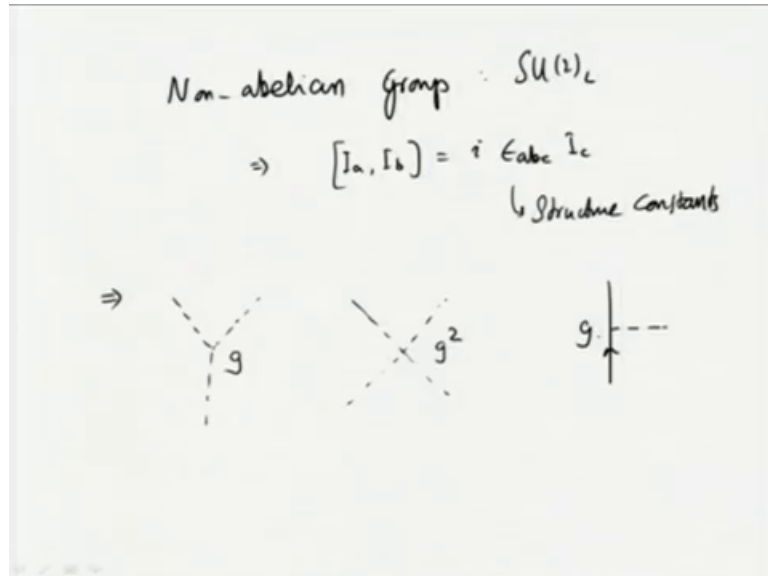 Non-abelian Group : SU(2)_L
⇒ [I_a, I_b] = i ε_abc I_c
↳ Structure Constants
⇒ g g² g